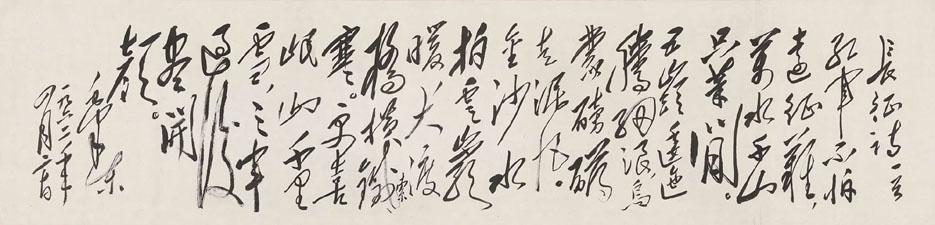 長征詩一首
紅軍不怕
遠征難，
萬水千山
只等閒。
五嶺逶迤
騰細浪，烏
蒙磅礴
走泥丸。
金沙水
拍雲崖
暖，大渡
橋橫鐵索
寒。更喜
岷山千里
雪，三軍
過後
盡開
顏。
毛澤東
一九六二年
四月二十日